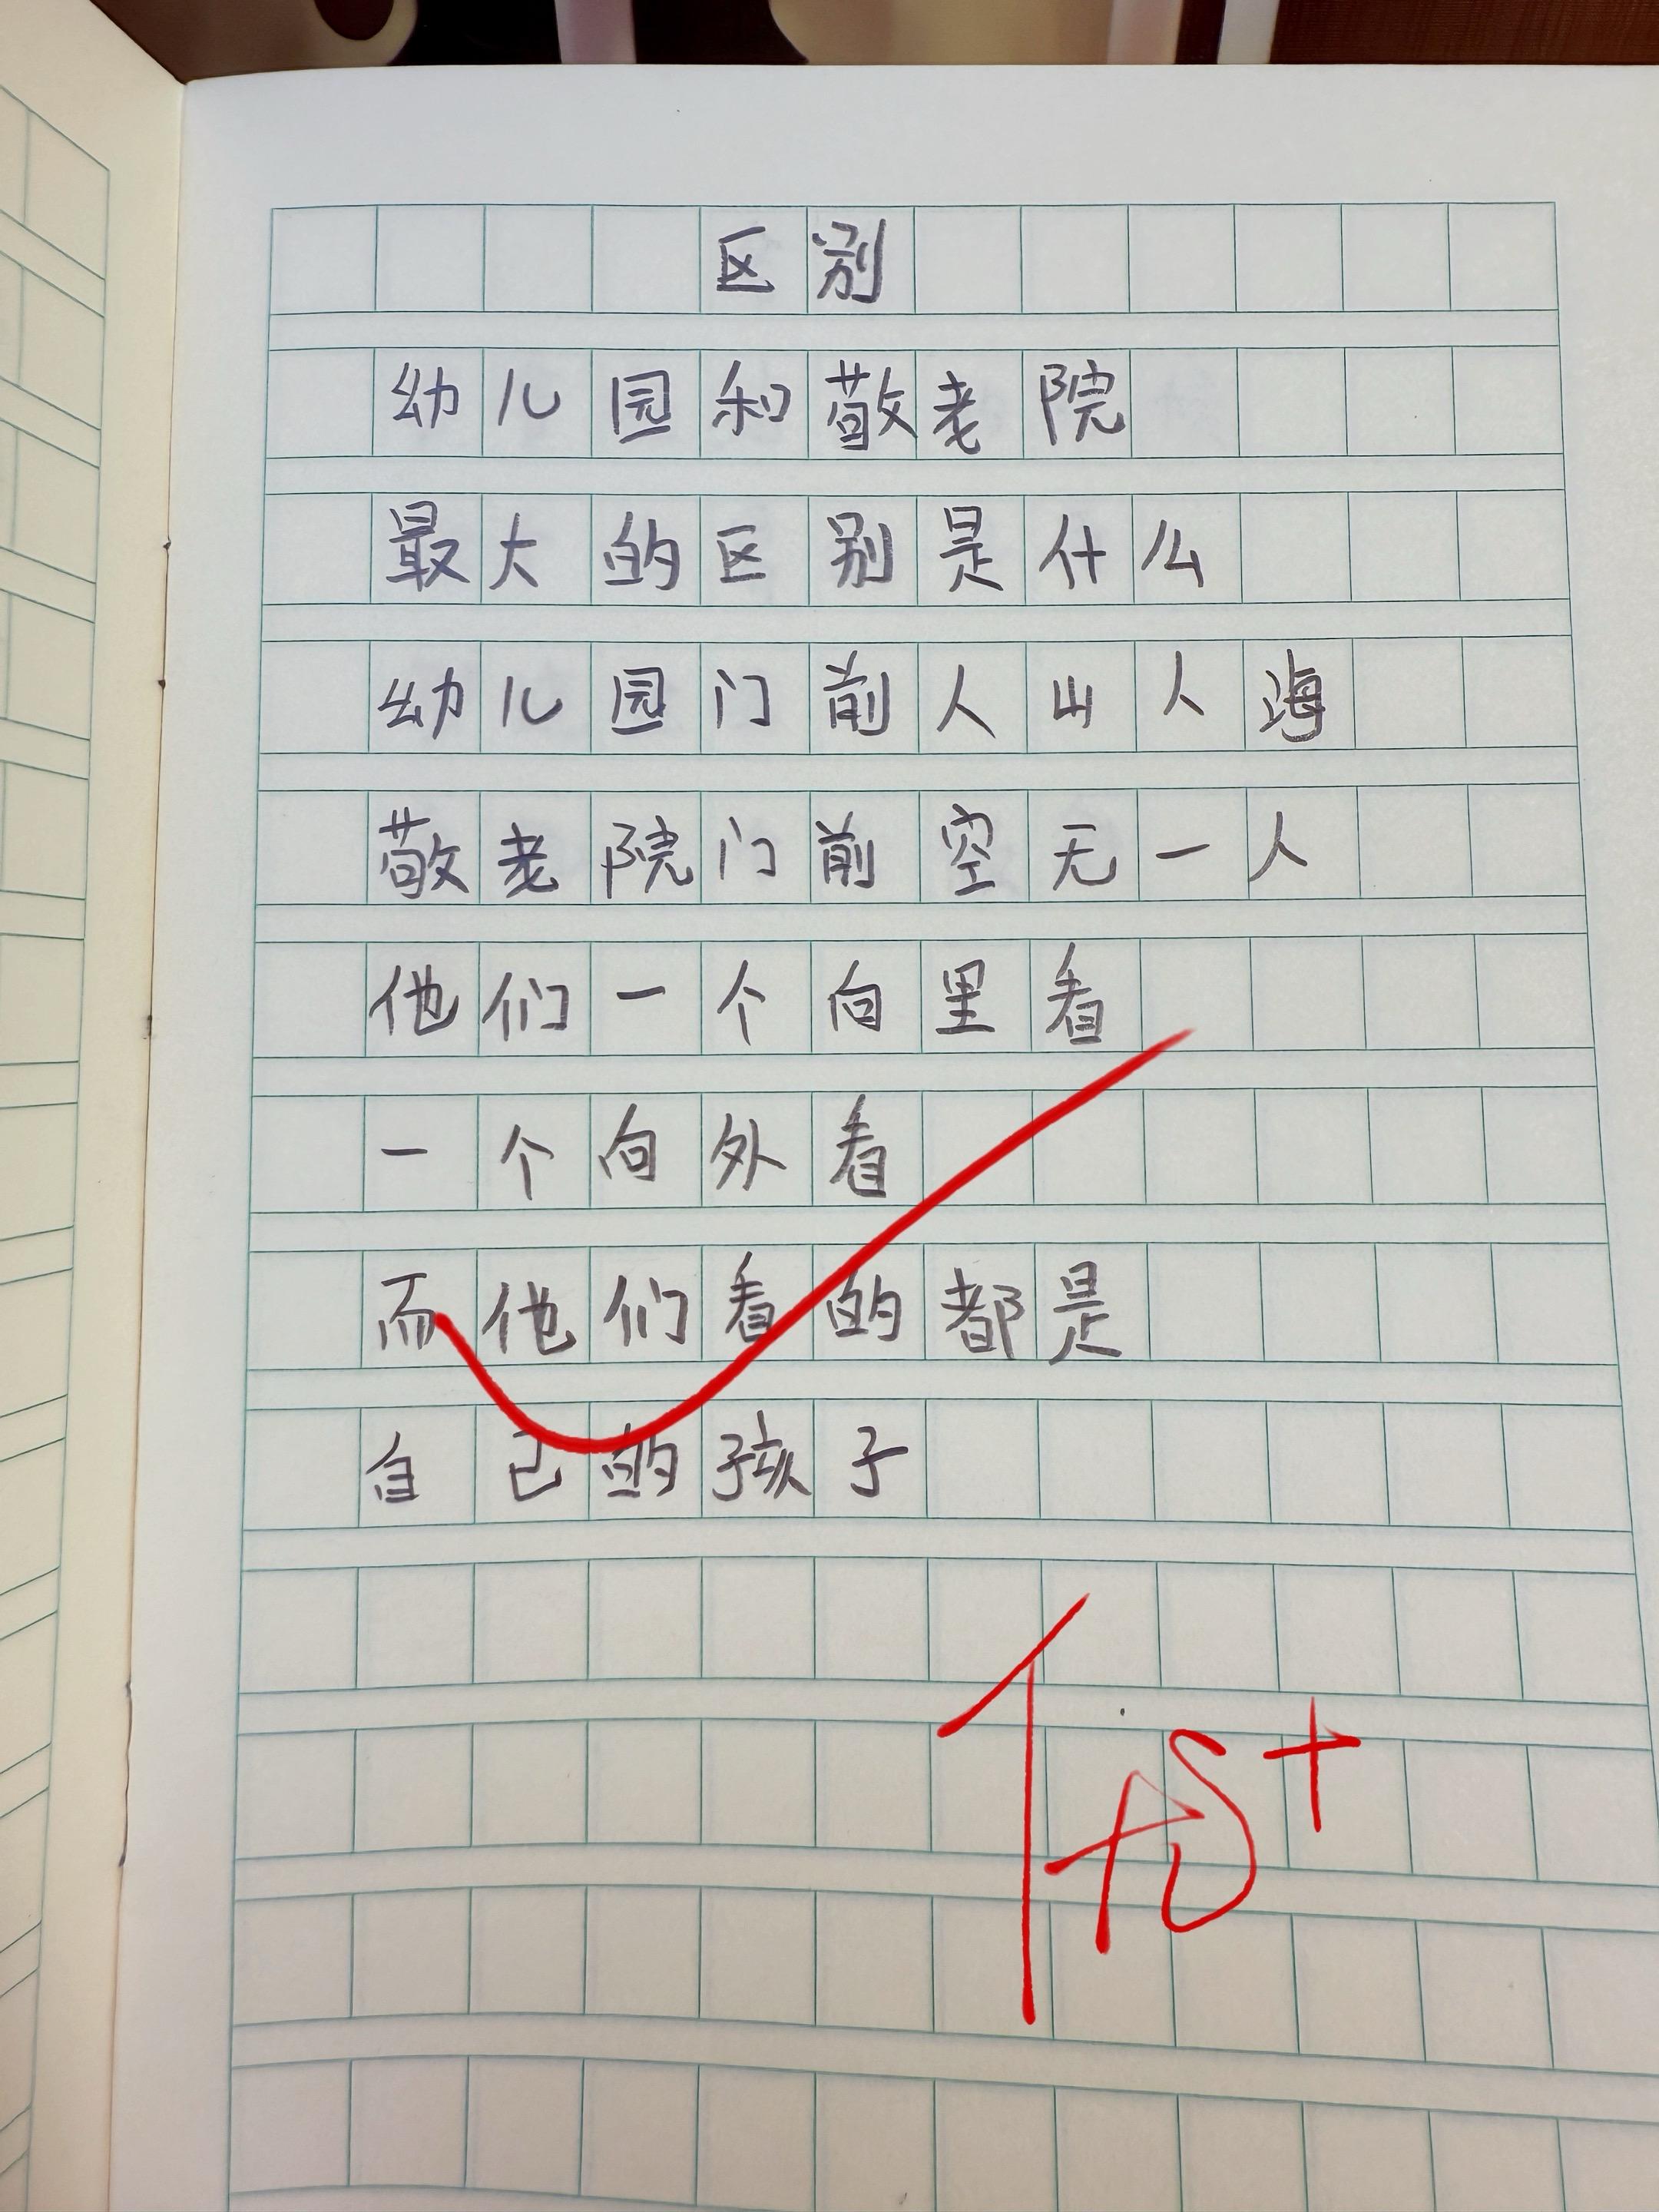 区别
幼儿园和敬老院
最大的区别是什么
幼儿园门前人山人海
敬老院门前空无一人
他们一个向里看
一个向外看
而他们看的都是
自己的孩子